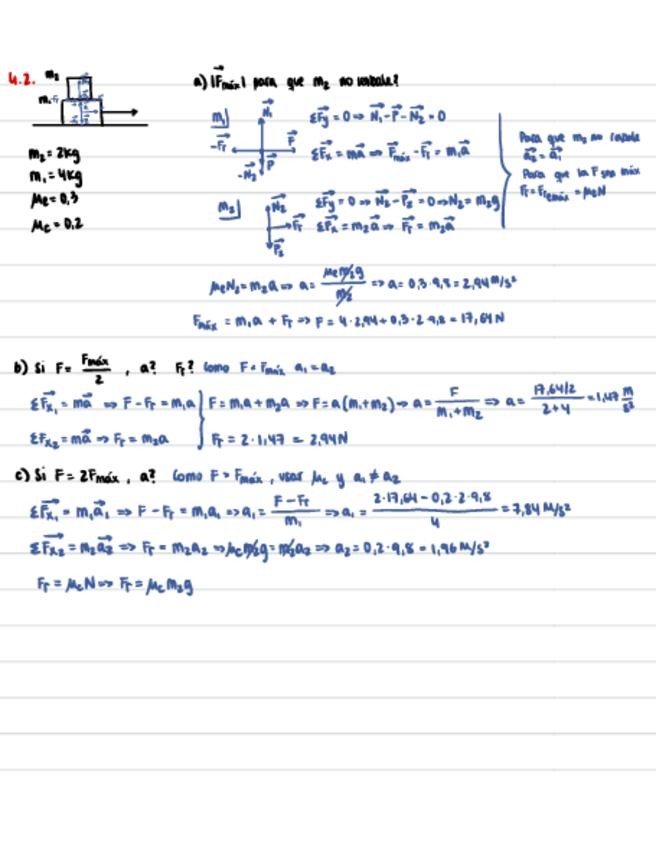 4.2. m₂
m₁
a) |F⃗máx| para que m₂ no resbale?
m₁| N⃗₁ -F⃗r F⃗ -N⃗₂ P⃗
ΣF⃗y = 0 ⇒ N⃗₁ - P⃗ - N⃗₂ = 0
ΣF⃗x = ma⃗ ⇒ F⃗máx - F⃗r = m₁a⃗
m₂ = 2kg
m₁ = 4kg
μe = 0,3
μc = 0,2
m₂| N⃗₂ F⃗r P⃗₂
ΣF⃗y = 0 ⇒ N⃗₂ - P⃗₂ = 0 ⇒ N₂ = m₂g
ΣF⃗x = m₂a⃗ ⇒ F⃗r = m₂a⃗
Para que m₂ no resbale
a⃗₂ = a⃗₁
Para que la F sea máx
Fr = Fremáx = μeN
μeN₂ = m₂a ⇒ a = μem₂g / m₂ ⇒ a = 0,3·9,8 = 2,94 m/s²
Fmáx = m₁a + Fr ⇒ F = 4·2,94 + 0,3·2·9,8 = 17,64 N
b) Si F = Fmáx / 2 , a? Fr? Como F < Fmáx a₁ = a₂
ΣF⃗x₁ = ma⃗ ⇒ F - Fr = m₁a
F = m₁a + m₂a ⇒ F = a(m₁+m₂) ⇒ a = F / m₁+m₂ ⇒ a = 17,64/2 / 2+4 = 1,47 m/s²
ΣFx₂ = ma⃗ ⇒ Fr = m₂a
Fr = 2·1,47 = 2,94 N
c) Si F = 2Fmáx , a? Como F > Fmáx , usar μc y a₁ ≠ a₂
ΣF⃗x₁ = m₁a⃗₁ ⇒ F - Fr = m₁a₁ ⇒ a₁ = F - Fr / m₁ ⇒ a₁ = 2·17,64 - 0,2·2·9,8 / 4 = 7,84 m/s²
ΣF⃗x₂ = m₂a⃗₂ ⇒ Fr = m₂a₂ ⇒ μcm₂g = m₂a₂ ⇒ a₂ = 0,2·9,8 = 1,96 m/s²
Fr = μcN ⇒ Fr = μcm₂g